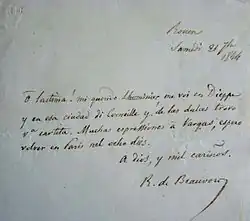 Rouen
Samedi 21 7bre
1844
O lastima! mi querido Lhuminier, me voi en Dieppe
y en esa ciudad di Corneille y de las dulas trovo
va cartita. Muchas espressiones a Vargas, espero
volver en Paris nel ocho dias.
A dios, y mil cariños.
R. de Beauvoir